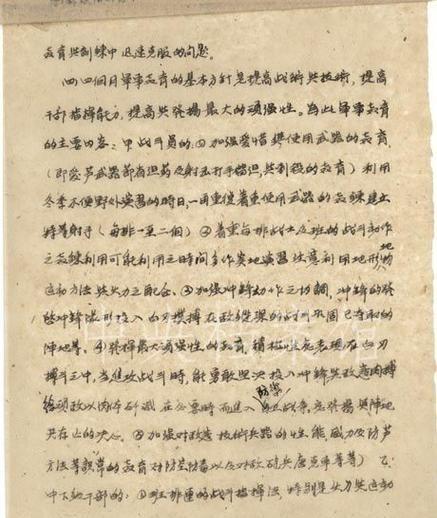 教育与训练中迅速克服的问题。
四、四个月军事教育的基本方针是提高战术与技术，提高
干部指挥能力，提高与发扬最大的顽强性。为此军事教育
的主要内容：甲战斗员的：①加强爱惜与使用武器的教育
（即爱护武器节省弹药及射击打手榴弹，与刺杀的教育）利用
冬季不便野外演习的时日，一周重复着重使用武器的教练建立
特等射手（每排一至二個）②着重每排战士及班的战斗动作
之教练利用可能利用之时间多作实地演习注意利用地形地物
运动方法与火力之配合、③加强冲锋动作之协调，冲锋的
冲锋队形投入白刃搏斗在敌 的战斗 巩固已夺取的
阵地等。④发扬最大顽强性的教育，积极性应表现在白刃
搏斗之中，当进攻战斗时，能勇敢坚决投入冲锋与敌肉搏
给顽敌以肉体歼灭在必要时而进入防禦战争，应发扬与阵地
共存亡的决心。⑤加强对敌 技術兵器的性能威力及防护
方法等教常的教育对防空防毒以及对敌砲兵唐克等等）乙
中下级干部的：①班排连的战斗指挥法，特别是火力与运动